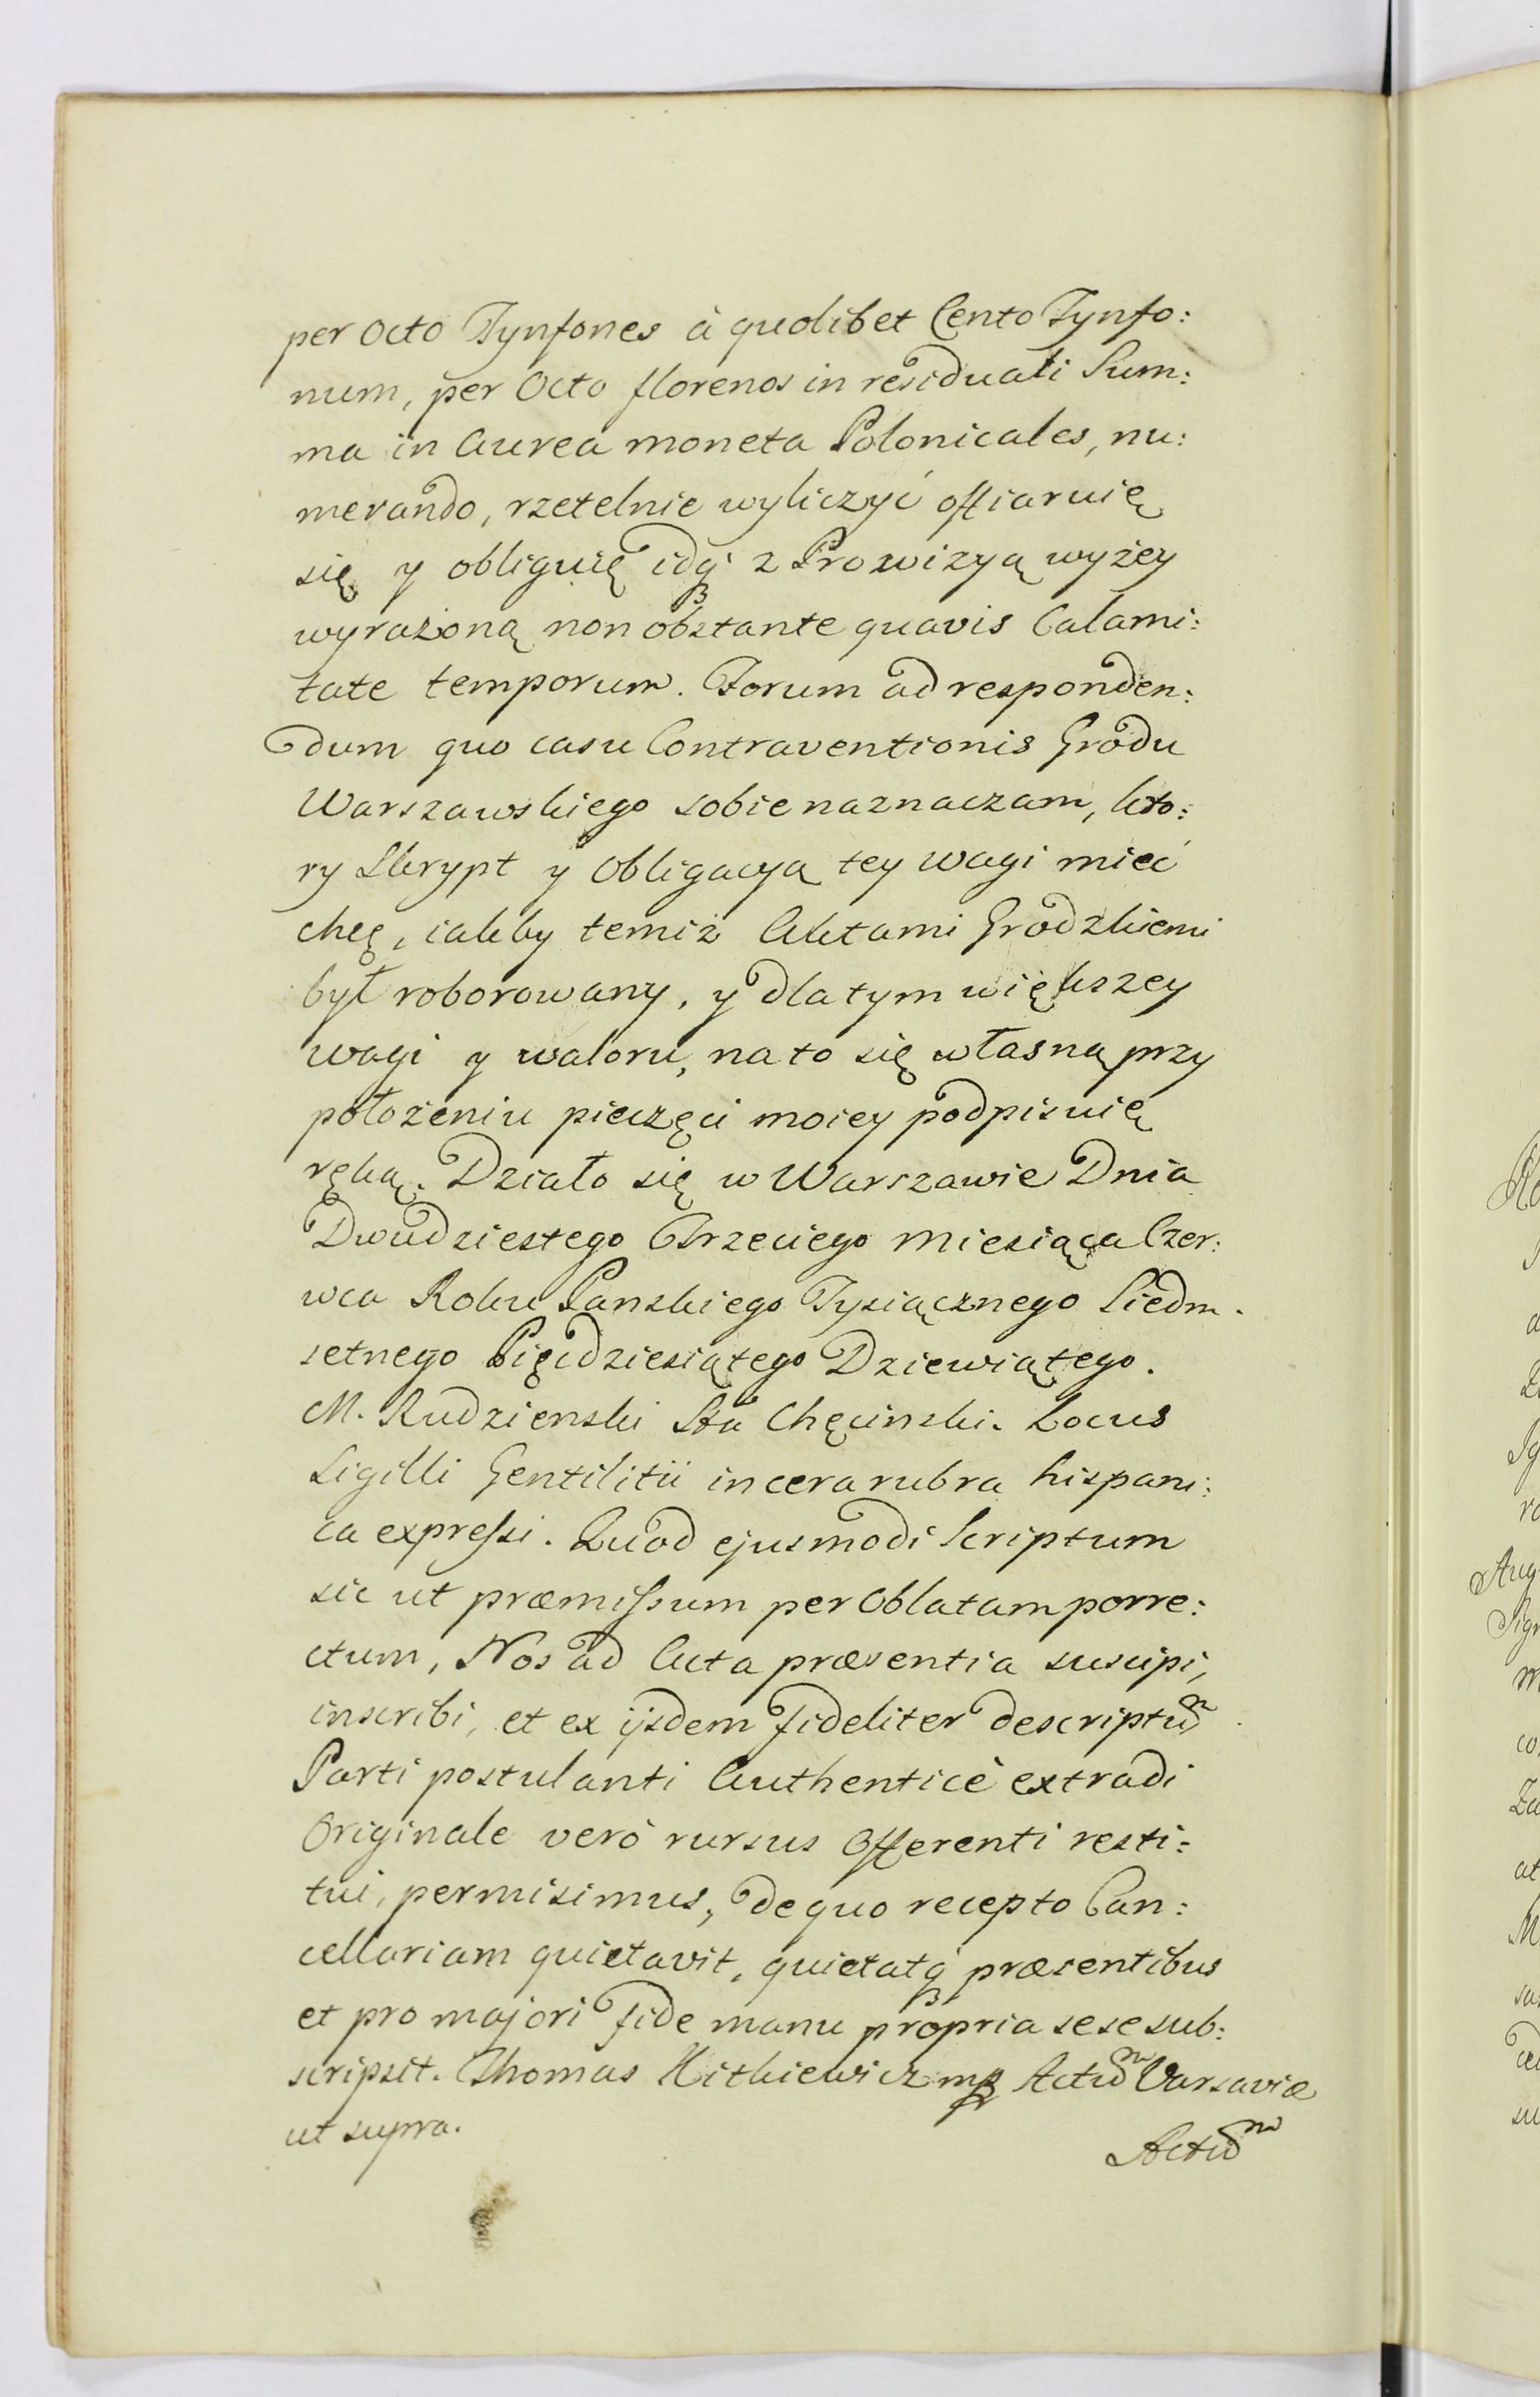 per Octo Tynfones à quolibet Cento Tynfo:
num, per Octo florenos in residuali Sum:
ma in Aurea moneta Polonicales, nu:
merando, rzetelnie wyliczyć offiaruię
się y obliguię idq́ z Prowizyą wyżey
wyrażoną non obstante quavis Calami:
tate temporum. Forum ad responden:
dum quo casu Contraventionis Grodu
Warszawskiego sobie naznaczam, kto:
ry Skrypt y Obligacya tey wagi mieć
chcę, iakby temiż Aktami Grodzkiemi
był roborowany, y dla tym większey
wagi y waloru, na to się własną przy
położeniu pieczęci moiey podpisuię
ręką. Działo się w Warszawie Dnia
Dwudziestego Trzeciego Miesiąca Czer:
wca Roku Panskiego Tysiącznego Siedm.
setnego Pięćdziesiątego Dziewiątego.
M. Rudzienski Sta Chęcinski. Locus
Sigilli Gentilitii in cera rubra hispani:
ca expressi. Quod ejusmodi Scriptum
sic ut præmissum per Oblatam porre:
ctum, Nos ad Acta præsentia suscipi,
inscribi, et ex ijsdem fideliter descriptum
Parti postulanti Authenticè extradi
Originale verò rursus Offerenti resti:
tui, permisimus, de quo recepto Can:
cellariam quietavit, quietatq́ præsentibus
et pro majori fide manu propria sese sub:
scripsit. Thomas Kitkiewicz mp Actum Varsaviæ
ut supra.
Actum